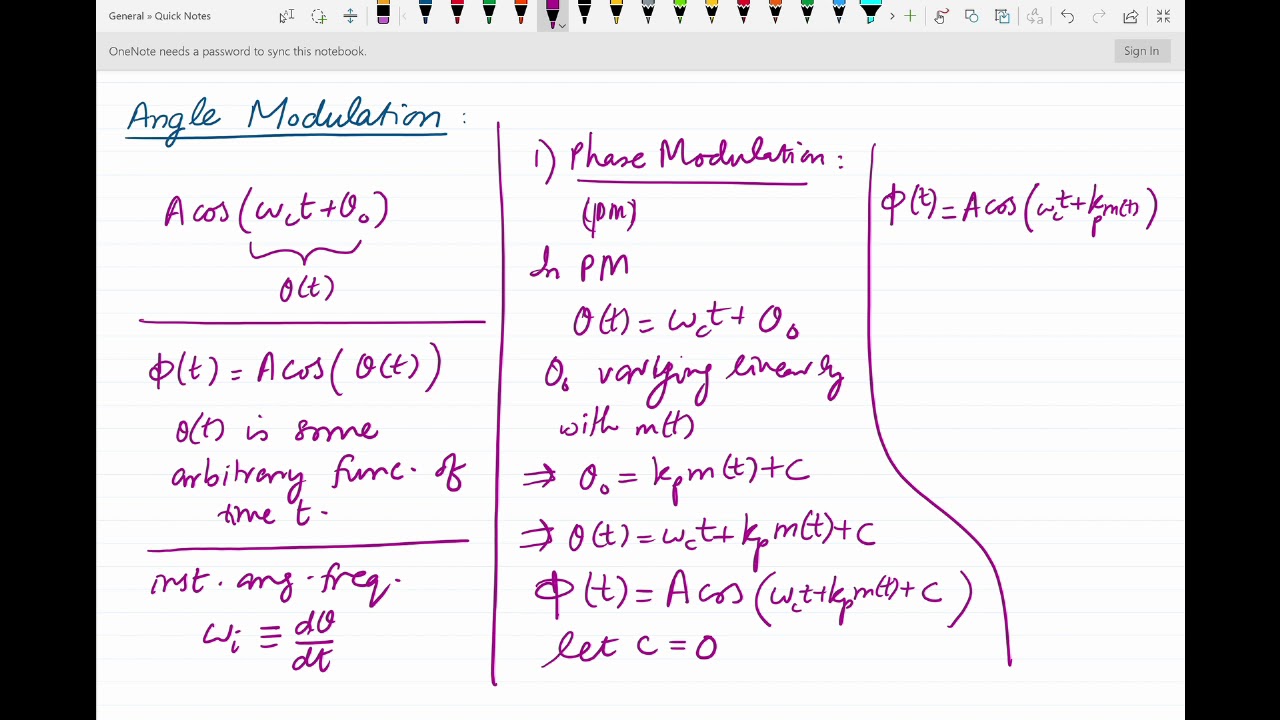 General » Quick Notes
OneNote needs a password to sync this notebook.
Sign In
Angle Modulation :
A cos(ω_c t + θ_o)
θ(t)
ϕ(t) = A cos( θ(t) )
θ(t) is some
arbitrary func. of
time t.
inst. ang. freq.
ω_i ≡ dθ/dt
1) Phase Modulation :
(PM)
In PM
θ(t) = ω_c t + θ_o
θ_o varying linearly
with m(t)
⇒ θ_o = k_p m(t) + C
⇒ θ(t) = ω_c t + k_p m(t) + C
ϕ(t) = A cos(ω_c t + k_p m(t) + C)
let C = 0
ϕ(t) = A cos(ω_c t + k_p m(t))